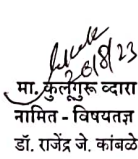 26/8/23
मा. कुलगुरू व्दारा
नामित - विषयतज्ञ
डॉ. राजेंद्र जे. कांबळे